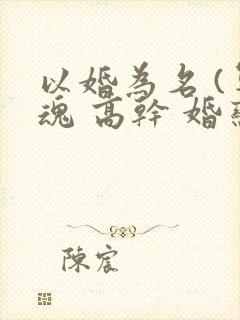 以婚為名（
魂 高幹 婚
陳宸